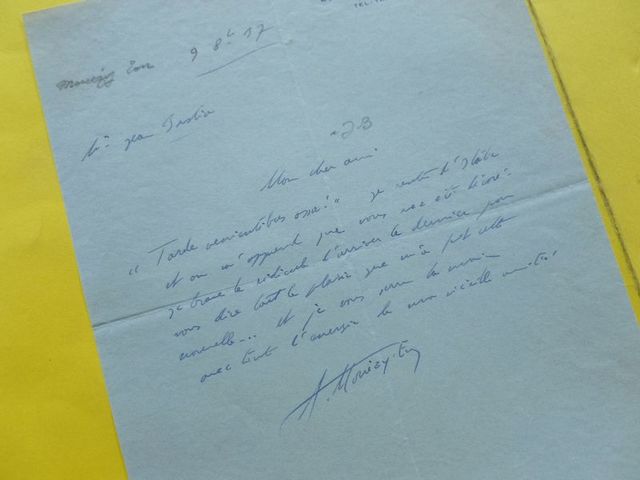 Mouëzy Eon 9 8bre 57
Mr Jean
Mon cher ami
"Tarde venientibus ossa!" je rentre d'Italie
et on m'apprend que vous avez été décoré.
je trouve le ridicule d'arriver le dernier pour
vous dire tout le plaisir que m'a fait cette
nouvelle... et je vous serre la main
avec toute l'énergie de ma vieille amitié.
A. Mouëzy-Eon